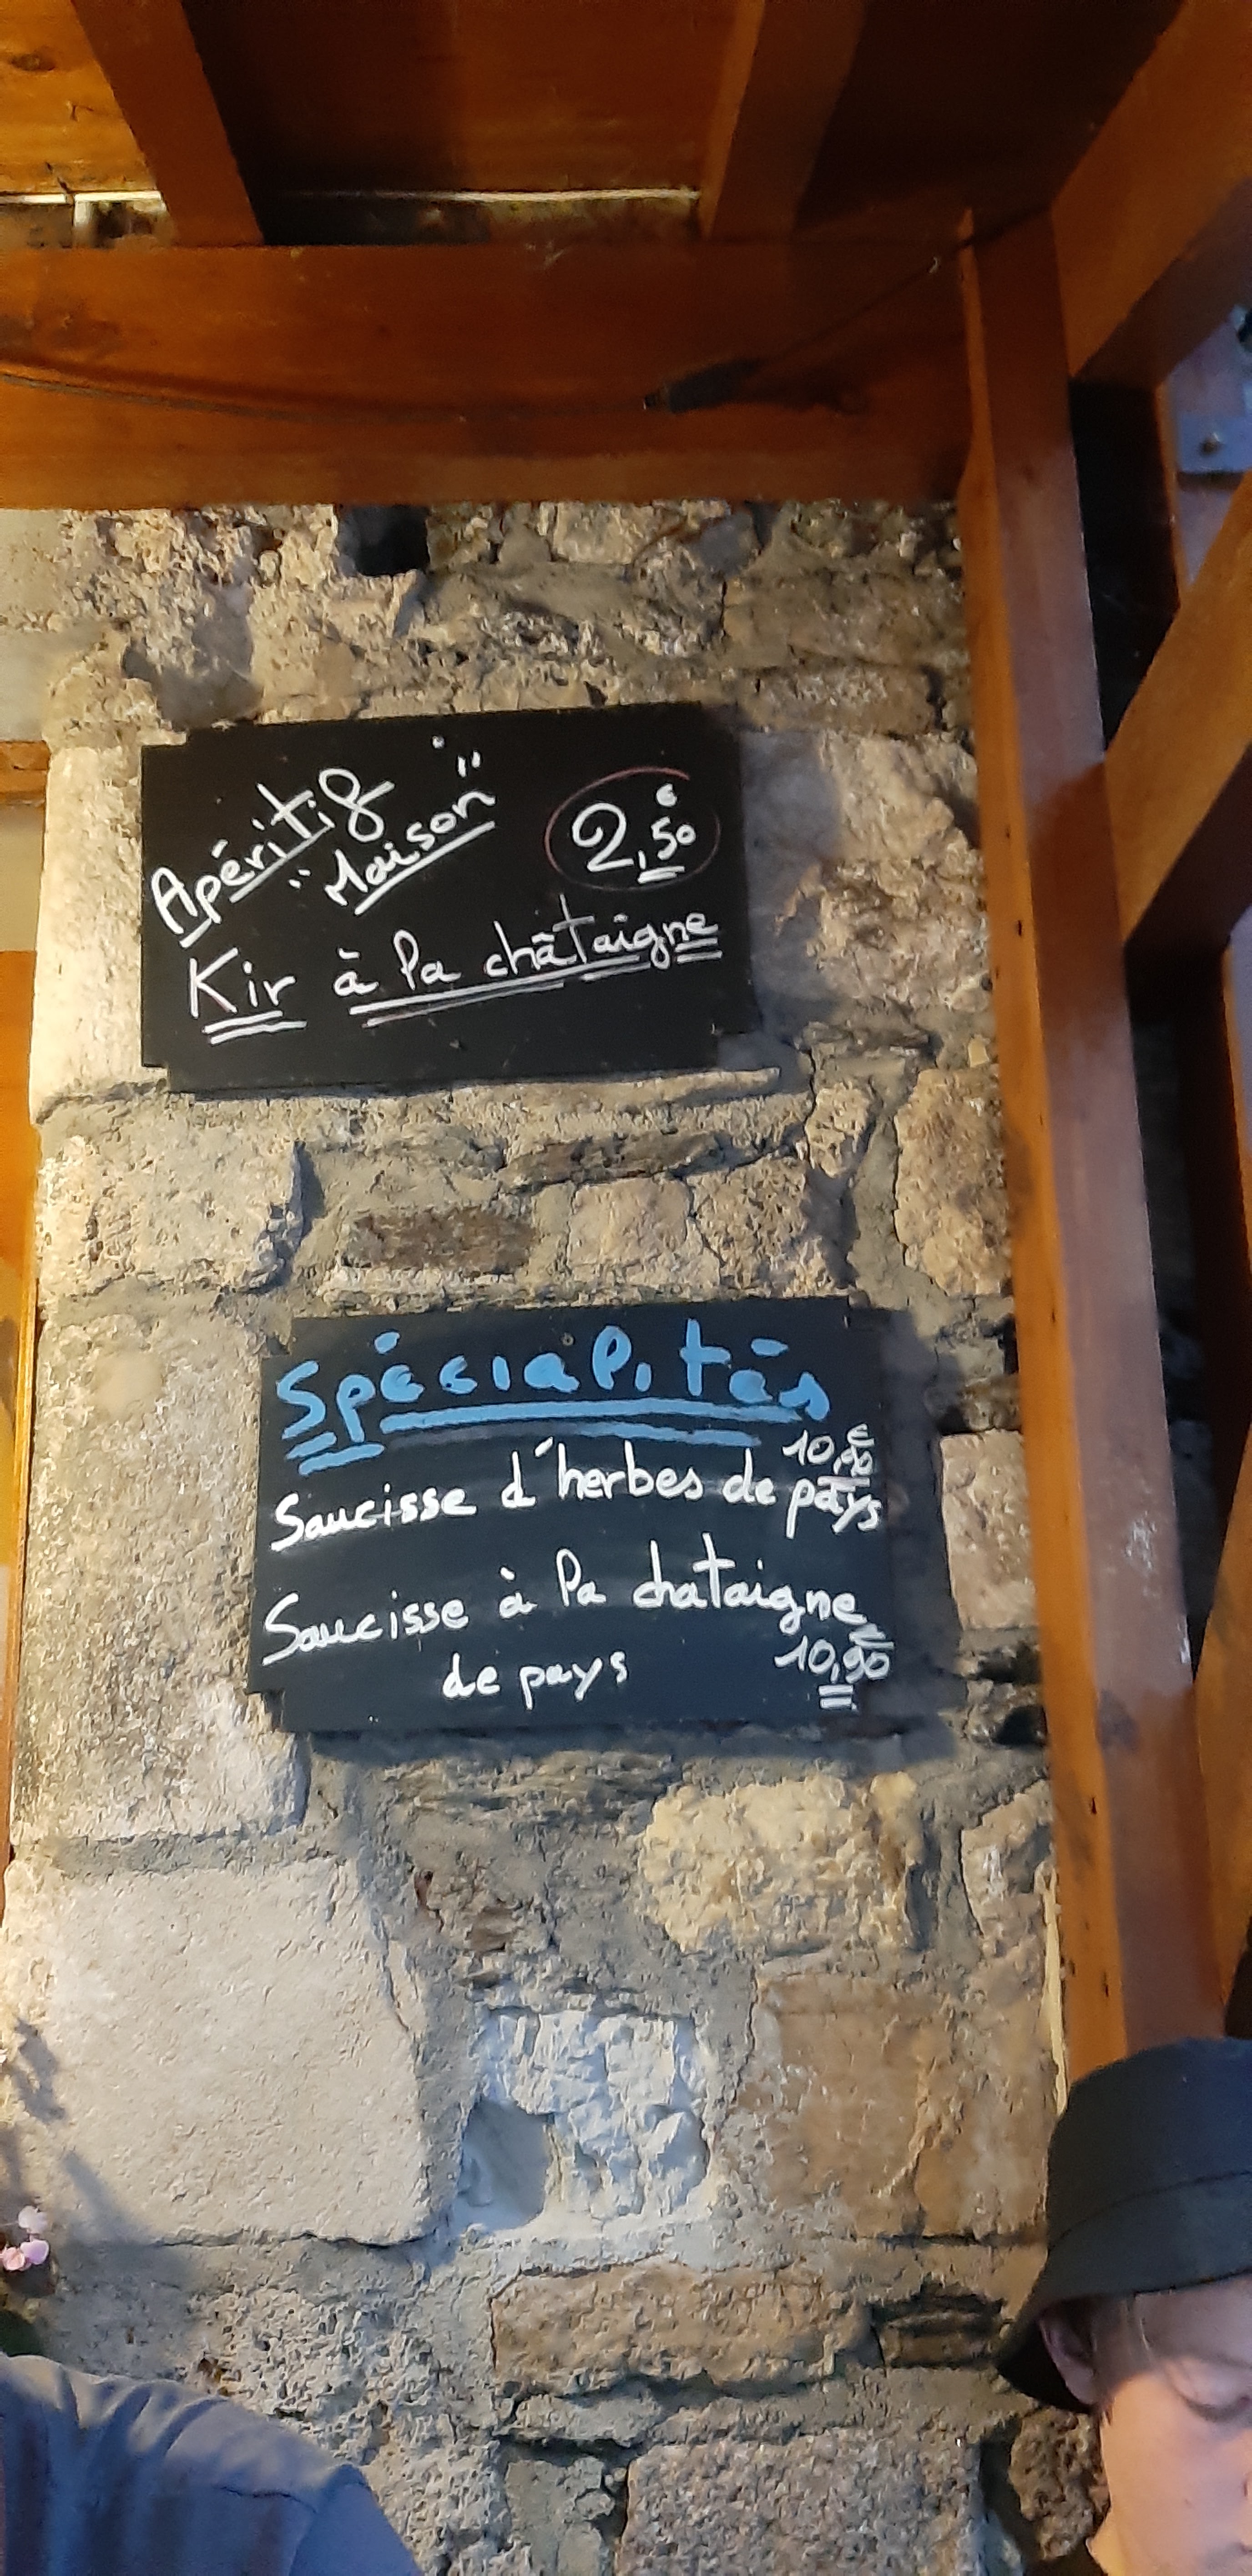 Apéritif
"Maison"
2,50€
Kir à la châtaigne
Spécialités
10,90€
Saucisse d'herbes de pays
Saucisse à la chataigne
de pays 10,90€